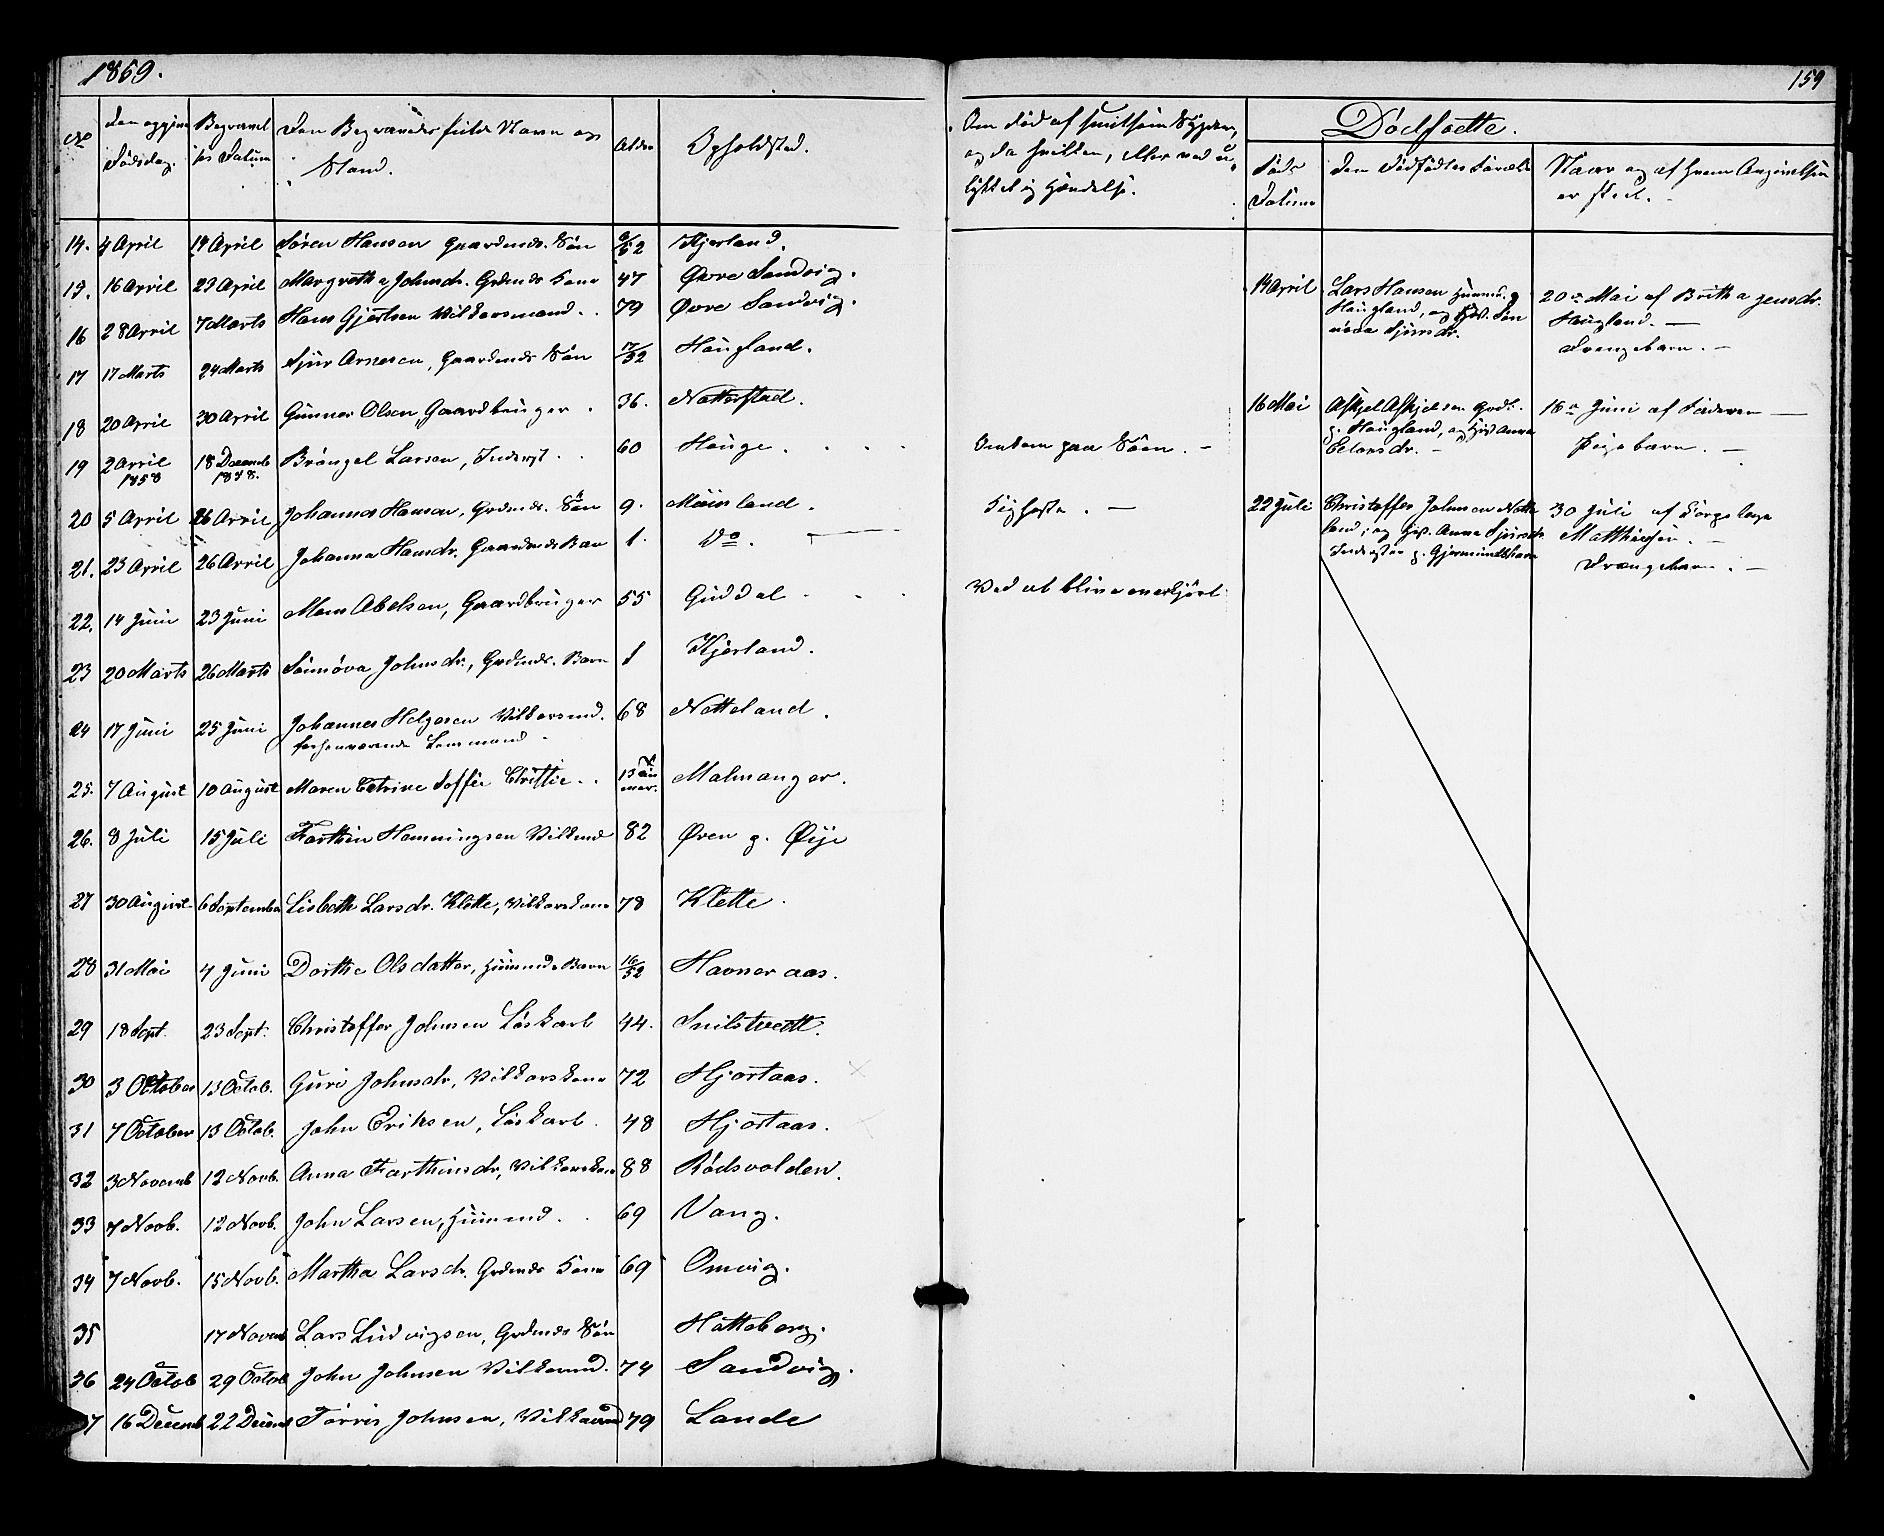 1869.
159
No
Den opgivne Dødsdag.
Begravelses Datum
Den Begravedes fulde Navn og Stand.
Alder
Opholdsted.
Om død af smitsom Sygdom, og da hvilken, eller ved ulykkelig Hændelse.
Dødfødte.
Føds. Datum
Den Dødfødtes Forældre
Naar og af hvem Angivelsen er skeet.
14. 4 April 14 April Søren Hansen Gaardmds. Søn 6/52 Kjerland.
15. 16 April 23 April Margrethe Johnsdr. Grdmds Kone 47 Øvre Sandvig.
16 28 April 7 Marts Hans Gjertsen Vilkarsmand. 79 Øvre Sandvig.
17 17 Marts 24 Marts Sjur Arnesen, Gaardmds Søn 17/52 Haugland.
18 20 April 30 April Gunnar Olsen, Gaardbruger. 36. Natterstad.
19 2 April 1858 18 Decemb 1858. Brüngel Larsen, Inderst. 60 Hauge. Omkom paa Søen. -
20 5 April 16 April Johannes Hansen, Grdmds. Søn 9. Mäusland. Kighoste. -
21. 23 April 26 April Johanna Hansdr. Gaardmds Barn 1. Do.
22. 14 Juni 23 Juni Mons Abelsen, Gaardbruger 55 Guddal Ved at blive overkjört
23 20 Marts 26 Marts Sünnöva Johnsdr., Grdmds. Barn 1 Kjerland.
24 17 Juni 25 Juni Johannes Helgesen Vilkarsmd. 68 Natteland.
forhenværende Lensmand
25. 7 August 10 August Maren Catrine Soffie Christie. 13 Malmanger.
26. 8 Juli 15 Juli Farthin Hemmingsen Vilkmd 82 Øren g. Øije
27 30 August 6 September Lisbeth Larsdr. Klette, Vilkarskone 78 Klette.
28 31 Mai 4 Juni Dorthe Olsdatter, Huusmds Barn 16/52 Havneraas.
29 18 Sept. 23 Sept. Christoffer Johnsen Löskarl 44. Snilstvedt.
30 3 October 13 Octob. Guri Johnsdr, Vilkarskone 72 Hjortaas.
31 7 October 13 Octob. John Eriksen, Löskarl. 48 Hjortaas.
32 3 Novemb 12 Novb. Anna Farthinsdr, Vilkarskone 88 Rödsvolden.
33 7 Novb. 12 Novb. John Larsen, Huusmd. 69 Vang.
34 7 Novb. 15 Novb. Martha Larsdr. Grdmds Kone 69 Omvig.
35 17 Novemb Lars Ludvigsen, Grdmds Søn Hatteberg.
36 24 Octob 29 Octob John Johnsen Vilkarmd. 74 Sandvig.
37 16 Decemb 22 Decemb Torris Johnsen, Vilkarmd 79 Lande
14 April Lars Hansen Huusmd. g. Haugland, og Hst. Sünnöva Sjursdr. 20de Mai af Britha Jensdr. Haugland. - Drengebarn. -
16 Mai Askjel Askjelsen Grdbr. g. Haugland, og Hst Anna Eelensdr. - 18de Juni af Faderen - Pigebarn. -
22 Juli Christoffer Johnsen Natteland, og Hst. Anna Sjursdr. Inderster g. Gjermundshavn 30 Juli af Matthiesen. - Drengebarn. -